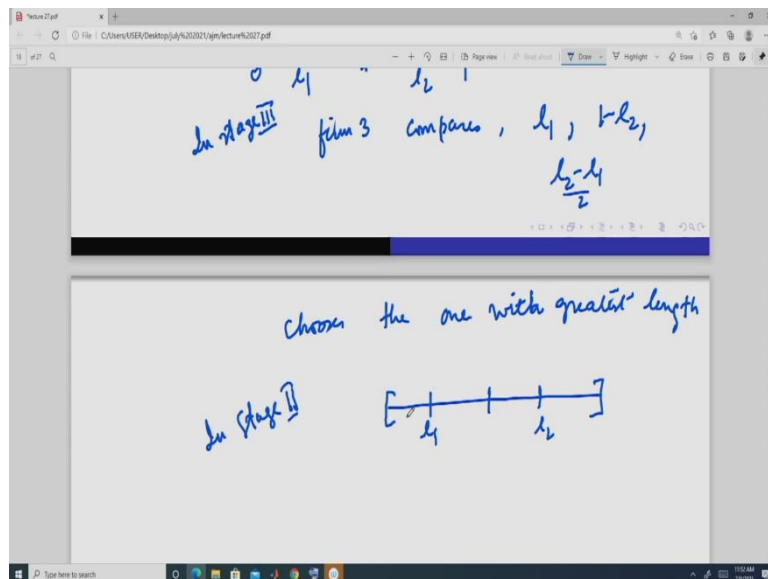 *lecture 27.pdf
File | C:/Users/USER/Desktop/july%202021/ajm/lecture%2027.pdf
18 of 27 Page view Read aloud Draw Highlight Erase
0 l1 l2 1
In stage III firm 3 compares , l1 , 1-l2 ,
l2-l1
2
chooses the one with greatest length
In stage II
l1 l2
Type here to search
11:52 AM